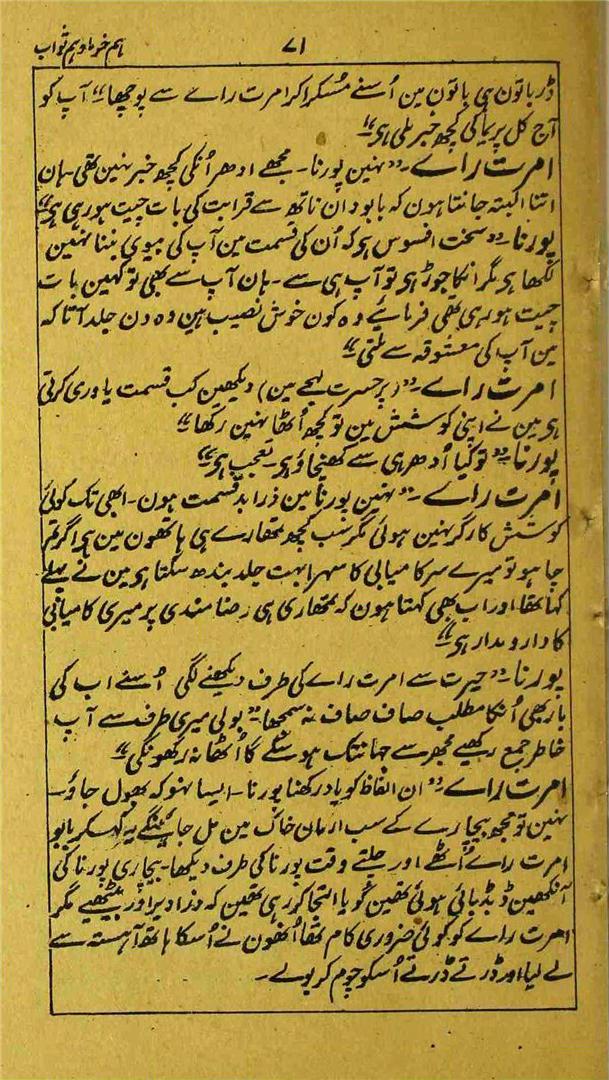 ہم خرما و ہم ثواب ۷۱
ڈر باتون ہی باتون مین اُسنے مُسکراکر امرت راے سے پوچھا‘‘ آپ کو
آج کل پریما کی کچھ خبر ملی ہی‘‘
امرت راے۔ ’’نہین پورنا۔ مجھے ادھر اُنکی کچھ خبر نہین تھی۔ ہان
اتنا البتہ جانتا ہون کہ بابو دان ناتھ سے قرابت کی بات چیت ہورہی ہی‘‘
پورنا۔ ’’سخت افسوس ہو کہ اُن کی قسمت مین آپ کی بیوی بننا نہین
لکھا ہی مگر اُنکا جوڑ ہی تو آپ ہی سے۔ ہان آپ سے بھی تو کہین بات
چیت ہورہی تھی فرمائے وہ کون خوش نصیب ہین وہ دن جلد آتا کہ
مین آپ کی معشوقہ سے ملتی‘‘
امرت راے۔ ’’(پرحسرت لہجے مین) دیکھین کب قسمت یاوری کرتی
ہی مین نے اپنی کوشش مین تو کچھ اُٹھا نہین رکھا‘‘
پورنا۔ ’’تو کیا اُدھر ہی سے کھنچاؤ ہی۔ تعجب ہی‘‘
امرت راے۔ ’’نہین پورنا مین ذرا بد قسمت ہون۔ ابھی تک کوئی
کوشش کارگر نہین ہوئی مگر سب کچھ تمھارے ہی ہاتھون مین ہی اگر تم
چاہو تو میرے سر کامیابی کا سہرا بہت جلد بندھ سکتا ہی مین نے پہلے
کہا تھا اور اب بھی کہتا ہون کہ تمھاری ہی رضامندی پر میری کامیابی
کا دار و مدار ہی‘‘
پورنا۔ ’’حیرت سے امرت راے کی طرف دیکھنے لگی اُسنے اب کی
بار بھی اُنکا مطلب صاف صاف نہ سمجھا۔ ’’بولی میری طرف سے آپ
خاطر جمع رکھیے مجھ سے جہانتک ہو سکے گا اُٹھا نہ رکھونگی‘‘
امرت راے۔ ’’ان الفاظ کو یاد رکھنا پورنا۔ ایسا نہو کہ بھول جاؤ۔
نہین تو مجھ بیچارے کے سب ارمان خاک مین مل جائینگے یہ کہہ کر بابو
امرت راے اُٹھے اور چلتے وقت پورنا کی طرف دیکھا۔ بیچاری پورنا کی
آنکھین ڈبڈبائی ہوئی تھین گویا التجا کر رہی تھین کہ ذرا دیر اور بیٹھیے مگر
امرت راے کو کوئی ضروری کام تھا اُنھون نے اُسکا ہاتھ آہستہ سے
لے لیا اور ڈرتے ڈرتے اُسکو چوم کر بولے۔